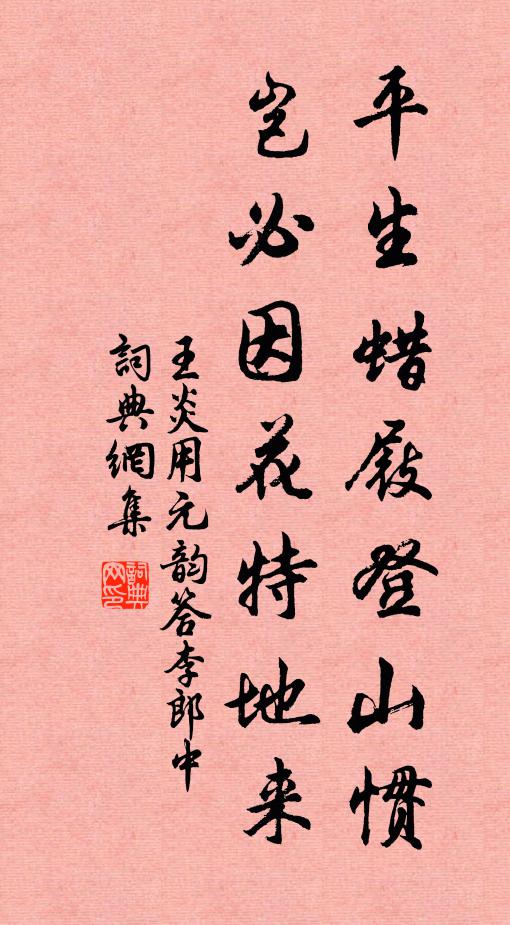 平生蜡屐登山惯
岂必因花特地来
王炎用元韵答李郎中
詞典網集
詞典网印